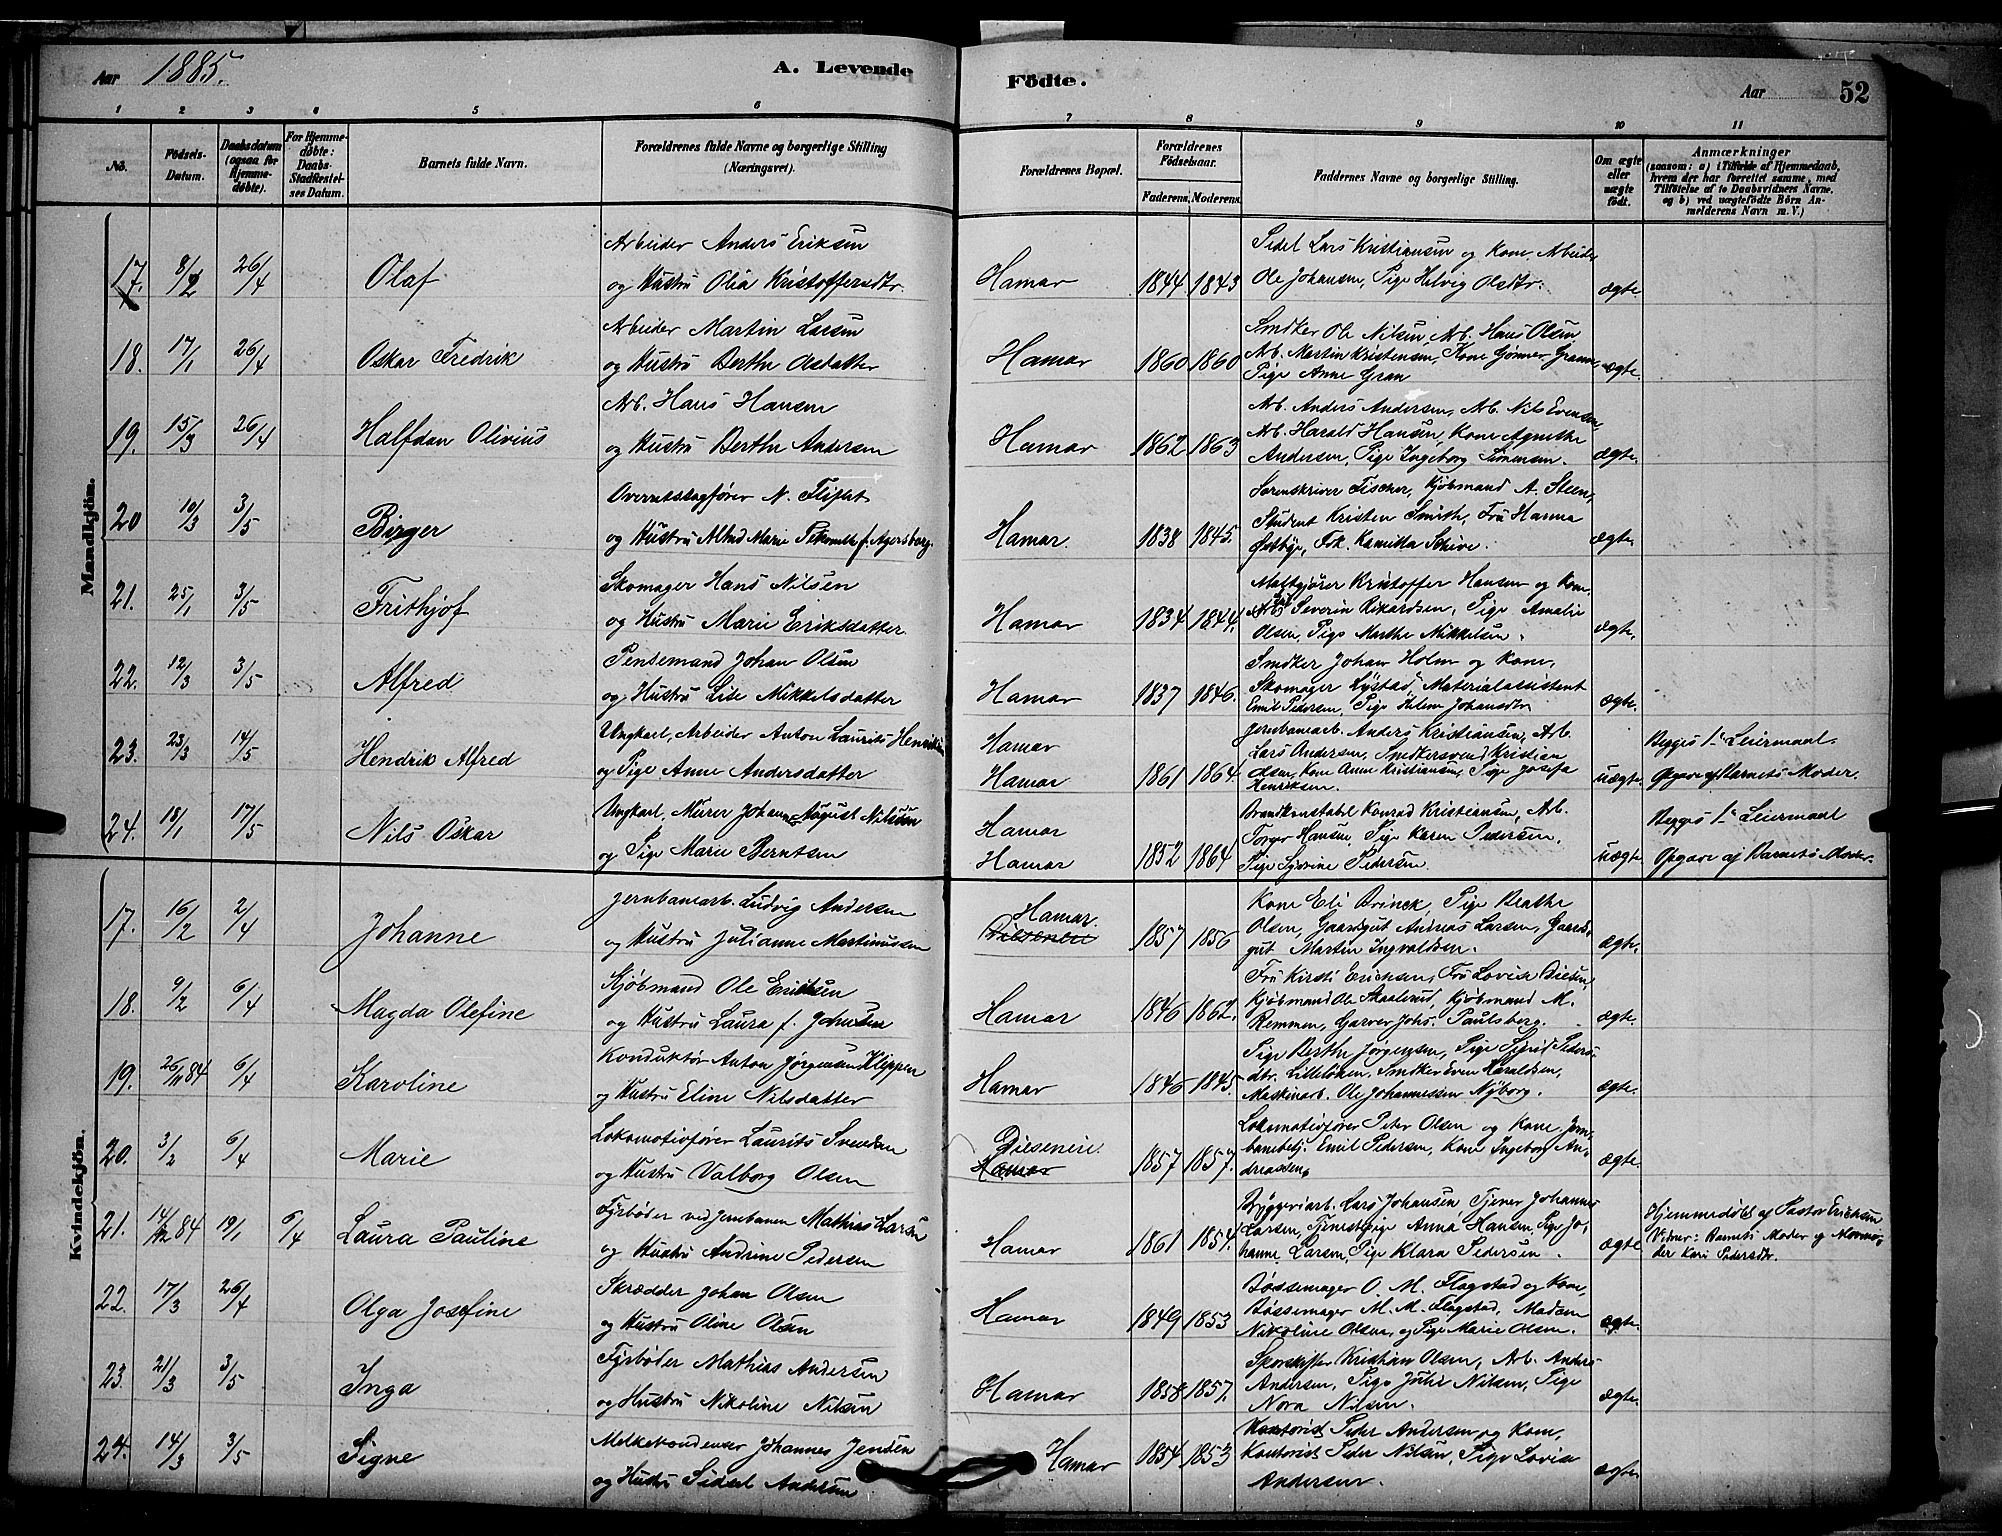 Aar 1885.
A. Levende
Födte.
Aar
52
1 2 3 4 5 6 7 8 9 10 11
No.
Födsels-Datum.
Daabsdatum (ogsaa for Hjemme-döbte).
For Hjemme-döbte: Daabs-Stadfæstelses Datum.
Barnets fulde Navn.
Forældrenes fulde Navne og borgerlige Stilling (Næringsvei).
Forældrenes Bopæl.
Forældrenes Födselsaar.
Faderens. Moderens.
Faddernes Navne og borgerlige Stilling.
Om ægte eller uægte födt.
Anmærkninger
(saasom: a) i Tilfælde af Hjemmedaab,
hvem der har forrettet samme, med
Tilföielse af to Daabsvidners Navne.
og b) ved uægtefödte Börn An-
melderens Navn m. V.)
Mandkjön.
Arbeider Anders Eriksen
Sedel Lars Kristiansen og Kone, Arbeider
17. 8/2 26/4 Olaf og Hustru Olia Kristoffersdtr. Hamar 1844 1843 Ole Johansen, Pige Helvig Olsdtr. ægte.
Arbeider Martin Larsen
Smdker Ole Nilsen, Arb. Hans Olsen,
18. 17/1 26/4 Oskar Fredrik og Hustru Berthe Olsdatter Hamar 1860 1860 Arb. Martin Kristensen, Kone Gjønner Gran, ægte.
Pige Anne Gran
Arb. Hans Hansen
Arb. Anders Andersen, Arb. Nils Evensen,
19. 15/3 26/4 Halfdan Olivius og Hustru Berthe Andersen Hamar 1862 1863 Arb. Harald Hansen, Kone Agnethe
Andersen, Pige Ingeborg Simensen. ægte.
Overretssagfører N.
Sorenskriver Fischer, Kjøbmand A. Steen,
20 10/3 3/5 Birger og Hustru Marie f. Agersborg. Hamar. 1838 1845. Student Kristen Smith, Fru Hanna
Østbye, Frk. Kamilla Schive. ægte.
Skomager Hans Nilsen
Maltgjører Kristoffer Hansen og Kone,
21. 25/1 3/5 Frithjof og Hustru Marie Eriksdatter Hamar 1834 1844. Severin Rikardsen, Pige Amalie
Olsen, Pige Marthe Mikkelsen. ægte.
Pensemand Johan Olsen
Smdker Johan Holm og Kone,
22. 12/3 3/5 Alfred og Hustru Lise Mikkelsdatter Hamar 1837 1846. Skomager Lystad, Materialassistent
Emil Pedersen, Pige Helene Johansdtr ægte.
Ungkarl, Arbeider Anton Laurits Henriksen
Hamar
Jernbanearb. Anders Kristiansen, Arb.
Begges 1ste Leiermaal.
23. 23/3 14/5 Hendrik Alfred og Pige Anne Andersdatter Hamar 1861 1864. Lars Andersen, Smdkersvend Kristian
Olsen, Kone Anne Kristiansen, Pige Josefa
Henriksen. uægte. Opgave af Barnets Moder.
Ungkarl, Murer Johann August Nilsson
Hamar
Brandkonstabel Konrad Kristiansen, Arb.
Begges 1ste Leiermaal
24. 18/1 17/5 Nils Oskar og Pige Marie Berntsen Hamar 1852 1864 Torger Hansen, Pige Karen Pedersen.
Pige Pedersen uægte. Opgave af Barnets Moder.
Kvindekjön.
Jernbanearb. Ludvig Andersen
Hamar.
Kone Eli Brinck, Pige Beathe
17. 16/2 2/4 Johanne og Hustru Julianne Martinussen Diseneie 1857 1856 Olsen, Gaardgut Andreas Larsen, Gaard-
gut Martin Ingvaldsen. ægte.
Kjøbmand Ole Erichsen
Fru Kirsti Erichsen, Fru Lovise Diesen,
18. 9/2 6/4 Magda Olefine og Hustru Laura f. Johnsen Hamar 1846 1862. Kjøbmand Ole Skaalerud, Kjøbmand M.
Remmen, Garver Johs. Paulsberg. ægte.
Konduktør Anton Jørgensen Kleppen
Pige Berthe Jørgensen, Pige Sigrid Peders-
19. 26/11 84 6/4 Karoline og Hustru Eline Nilsdatter Hamar 1846 1845. dtr. Lilleløken, Smdker Even Haraldsen,
Maskinarb. Ole Johannessen Nyborg. ægte.
Lokomotivfører Laurits Svendsen
Diseneie.
Lokomotivfører Peter Olsen og Kone, Jern-
20. 3/2 6/4 Marie og Hustru Valborg Olsen Hamar 1857 1857. banebetj. Emil Pedersen, Kone Ingeborg An-
dreassen. ægte.
Fyrbøder ved Jernbanen Mathias Larsen
Bryggeriarb. Lars Johansen, Tjener Johannes
Hjemmedøbt af Pastor Erichsen
21. 14/12 84 19/1 6/4 Laura Pauline og Hustru Andrine Pedersen Hamar 1861 1854. Larsen, Tjenestpige Anna Hansen, Pige Jo-
hanne Larsen, Pige Klara Pedersen. ægte
Vidner: Barnets Moder og Mormo-
der Kari Pedersdtr.
Skrædder Johan Olsen
Bøssemager O. M. Flagstad og Kone,
22. 17/3 26/4 Olga Josefine og Hustru Oline Olsen Hamar 1849 1853 Bøssemager M. M. Flagstad, Madam
Nikoline Olsen, og Pige Marie Olsen. ægte.
Fyrbøder Mathias Andersen
Sporskifter Kristian Olsen, Arb. Anders
23. 21/3 3/5 Inga og Hustru Nikoline Nilsen Hamar 1858 1857. Andersen, Pige Julie Nilsen, Pige
Nora Nilsen. ægte.
Melkekondenser Johannes Jensen
Kontorist Peder Andersen og Kone,
24. 14/3 3/5 Signe og Hustru Sidsel Andersen Hamar 1854. 1853 Kontorist Peder Nilsen, Pige Lovise
Andersen. ægte